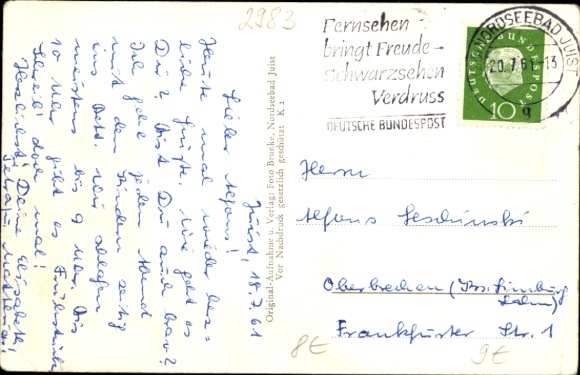 2983
Juist, 18.7.61
Lieber Alfons!
Heute mal wieder bes=
liebe Grüße. Wie geht es
Dir? Bist Du auch brav?
Ich gehe jeden Abend
mit den Kindern zeitig
ins Bett. Wir schlafen
meistens bis 9 Uhr. Bis
10 Uhr gibt es Frühstück
Schreib' doch mal!
Herzlichst! Deine Elisabeth,
Original-Aufnahme u. Verlag: Foto Brunke, Nordseebad Juist
Vor Nachdruck gesetzlich geschützt K 2
Fernsehen
bringt Freude-
Schwarzsehen
Verdruss
DEUTSCHE BUNDESPOST
DEUTSCHE BUNDESPOST
10
NORDSEEBAD JUIST
20.7.61-13
a
Herrn
Alfons
Oberbrechen (Krs. Limburg
Lahn)
Frankfurter Str. 1
8€
9€